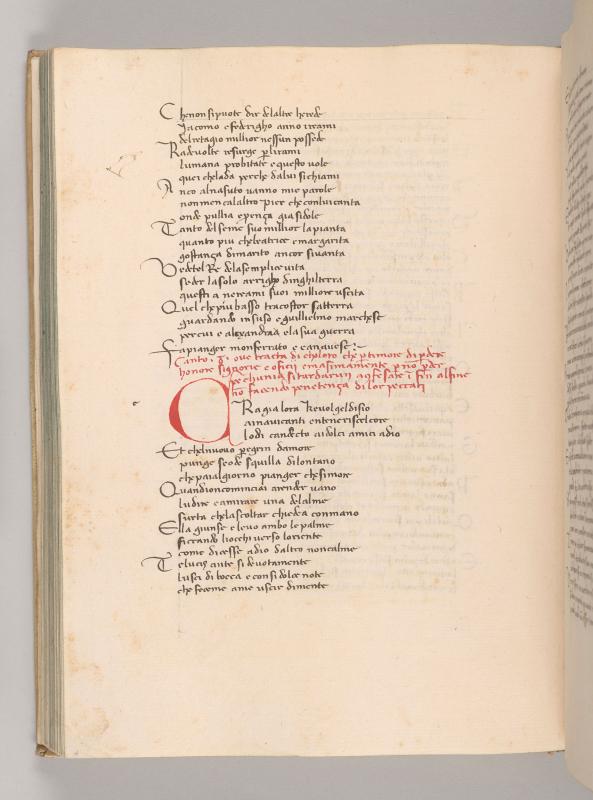 Che non si puote dir delaltre herede
Jacomo e federigho anno i reami
del retagio millior nessun possede
Rade volte resurge per li rami
lumana probitate e questo vole
quei che la da perche da lui si chiami
Anco al nasuto vanno mie parole
non men ca laltro Pier che con lui canta
onde pullia e pença gia si dole
Tanto del seme suo millior la pianta
quanto piu che beatrice e margarita
gostança di marito ancor si vanta
Vedete l Re de la semplice vita
seder la solo arrigho dinghilterra
questi a ne reami suoi milliore uscita
Quel che piu basso tra costor satterra
guardando in suso e guillielmo marchese
per cui e alexandria e la sua guerra
Fa pianger monferrato e canavese
Canto ove tracta di choloro che per timore di perdere
honore signorie e oficij e masimamente per no perder
pechunia si tardarun a chofesate i sin al fine
no facendo penetença di lor peccati
ORa gia lora ke volge l disio
ai navicanti e ntenerisce l core
lo di can decto ai dolci amici adio
Et che l nuovo peregrin damore
punge se ode squilla di lontano
che paia l giorno pianger che si more
Quandio n cominciai a render vano
ludire e a mirare una de lalme
surta che lascoltar chiedea con mano
Ella giunse e levo ambo le palme
ficcando li occhi verso loriente
come dicesse a dio daltro non calme
Te lucis ante si devotamente
lusci di bocca e con si dolce note
che feceme a me uscir di mente